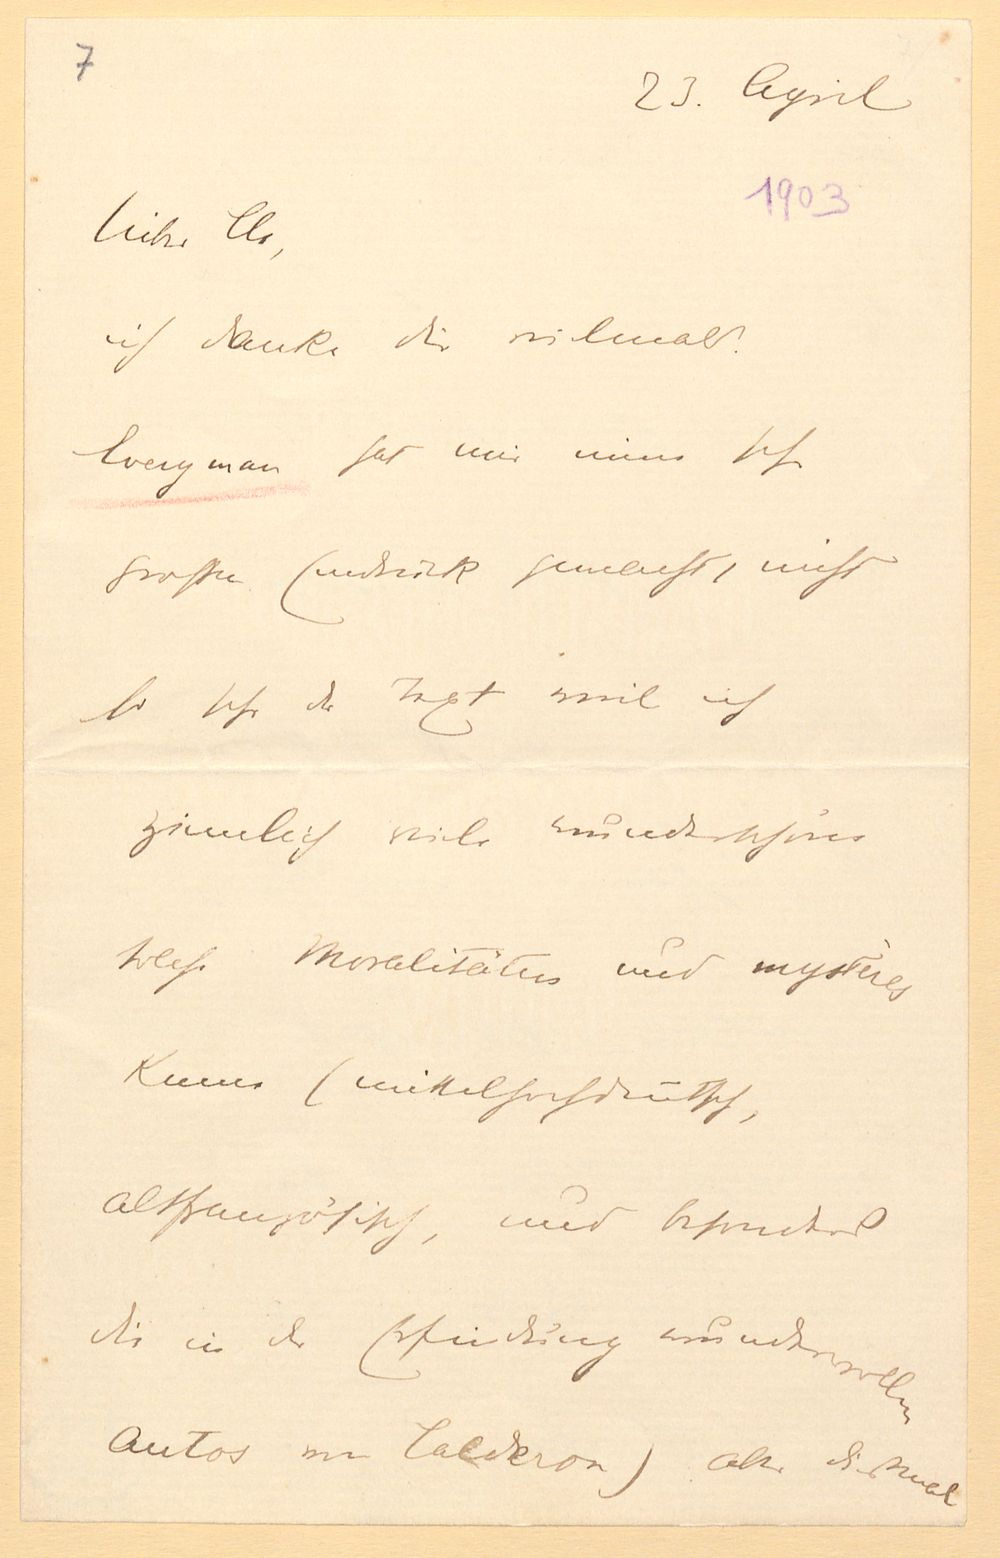 7
23. April
1903
Lieber Clo,
ich danke dir vielmals.
Everyman hat mir einen sehr
grossen Eindruck gemacht, nicht
so sehr der Text weil ich
ziemlich viele wunderschöne
solche Moralitäten und mystères
kenne (mittelhochdeutsch,
altfranzösisch, und besonders
die in der Erfindung wundervollen
autos von Calderon) aber diesmal